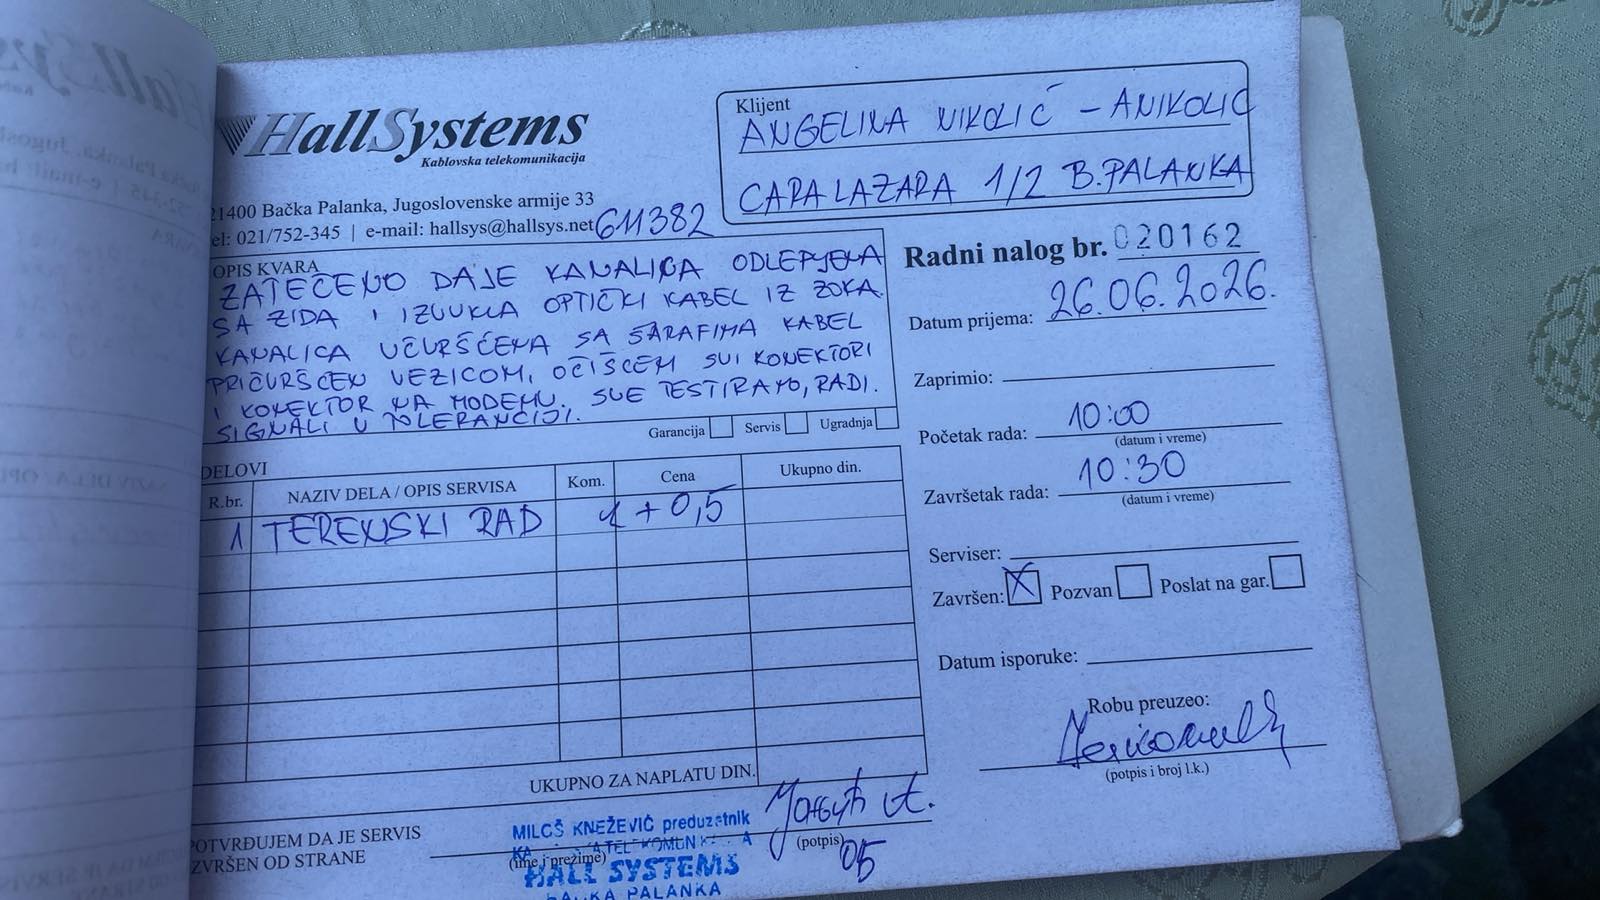 HallSystems
Kablovska telekomunikacija
21400 Bačka Palanka, Jugoslovenske armije 33
tel: 021/752-345 | e-mail: hallsys@hallsys.net
611382
Klijent
ANGELINA NIKOLIĆ - ANIKOLIC
CARA LAZARA 1/2 B.PALANKA
Radni nalog br. 020162
Datum prijema: 26.06.2026.
Zaprimio:
Početak rada: 10:00
(datum i vreme)
Završetak rada: 10:30
(datum i vreme)
Serviser:
Završen: X Pozvan Poslat na gar.
Datum isporuke:
Robu preuzeo:
(potpis i broj l.k.)
OPIS KVARA
ZATEČENO DA JE KANALICA ODLEPJENA
SA ZIDA I IZVUKLA OPTIČKI KABEL IZ ZOKA.
KANALICA UČVRŠĆENA SA ŠARAFIMA KABEL
PRIČVRŠĆEN VEZICOM, OČIŠĆEM SVI KONEKTORI
I KONEKTOR NA MODEMU. SVE TESTIRANO, RADI.
SIGNALI U TOLERANCIJI.
Garancija Servis Ugradnja
DELOVI
R.br. NAZIV DELA / OPIS SERVISA Kom. Cena Ukupno din.
1 TERENSKI RAD 1 + 0,5
UKUPNO ZA NAPLATU DIN.
POTVRĐUJEM DA JE SERVIS
IZVRŠEN OD STRANE
(ime i prezime)
(potpis)
05
MILOŠ KNEŽEVIĆ preduzetnik
HALL SYSTEMS
BAČKA PALANKA